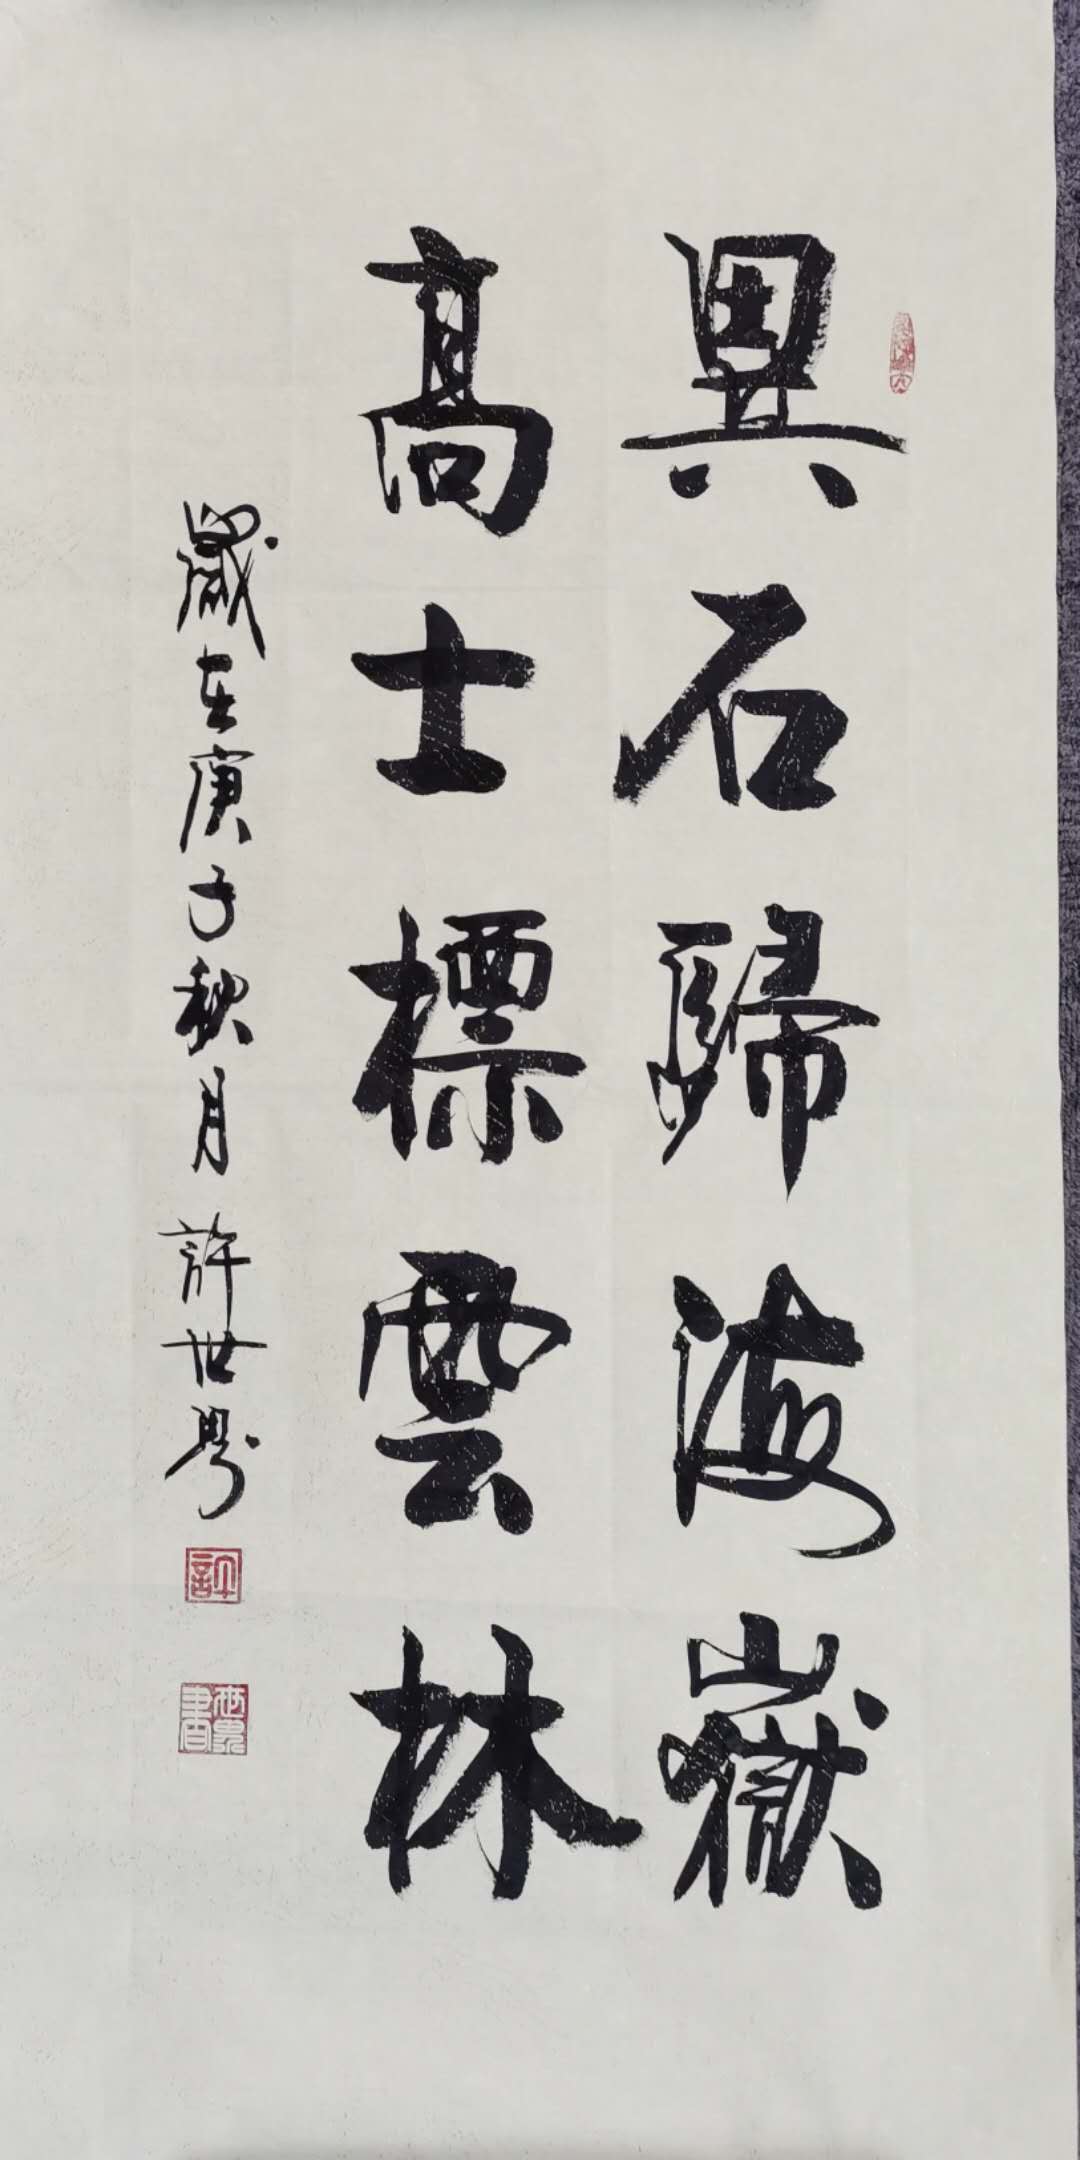 異石歸海嶽
高士標雲林
歲在庚子秋月 許世
許